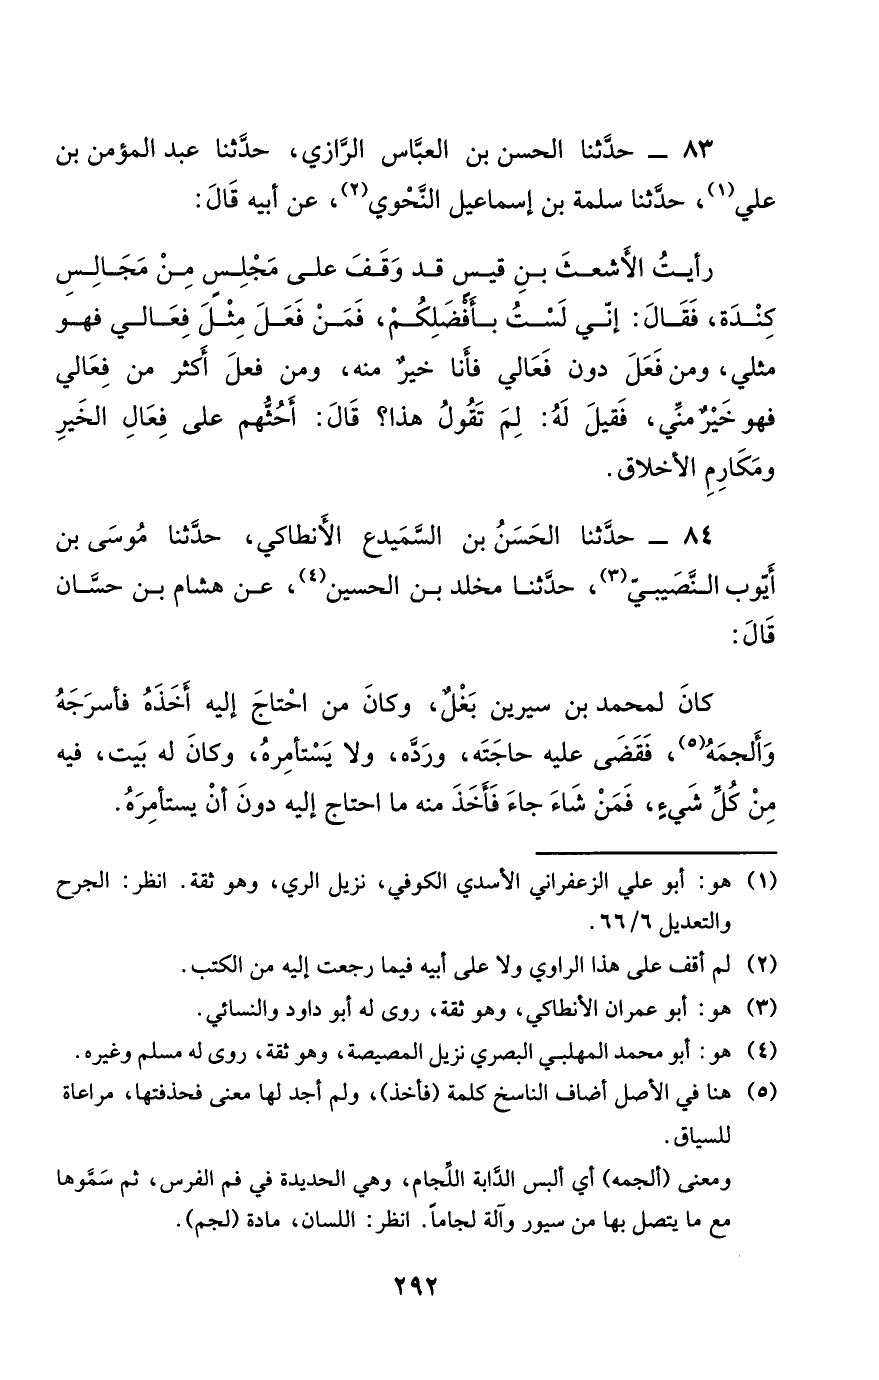 ٨٣ ـ حدَّثنا الحسن بن العبَّاس الرَّازي، حدَّثنا عبد المؤمن بن
علي(١)، حدَّثنا سلمة بن إسماعيل النَّحْوي(٢)، عن أبيه قَالَ:
رأيتُ الأَشعثَ بنِ قيسٍ قد وَقَفَ على مَجْلِسٍ مِنْ مَجَالِسِ
كِنْدَة، فَقَالَ: إنّي لَسْتُ بأَفْضَلِكُمْ، فَمَنْ فَعَلَ مِثْلَ فِعَالي فهو
مثلي، ومن فَعَلَ دون فَعَالي فأَنا خيرٌ منه، ومن فعلَ أَكثر من فِعَالي
فهو خَيْرٌ منِّي، فَقيلَ لَهُ: لِمَ تَقُولُ هذا؟ قَالَ: أَحُثُّهم على فِعَالِ الخَيرِ
ومَكَارِمِ الأخلاق.
٨٤ ـ حدَّثنا الحَسَنُ بن السَّمَيدع الأَنطاكي، حدَّثنا مُوسَى بن
أَيّوب النَّصَيبيّ(٣)، حدَّثنا مخلد بن الحسين(٤)، عن هشام بن حسَّان
قَالَ:
كانَ لمحمد بن سيرين بَغْلٌ، وكانَ من احْتاجَ إليه أَخَذَهُ فأسرَجَهُ
وَأَلجمَهُ(٥)، فَقَضَى عليه حاجَتَه، وردَّه، ولا يَسْتأمِرهُ، وكانَ له بَيت، فيه
مِنْ كُلِّ شَيءٍ، فَمَنْ شَاءَ جاءَ فَأَخَذَ منه ما احتاج إليه دونَ أنْ يستأمِرَهُ.
(١) هو: أبو علي الزعفراني الأسدي الكوفي، نزيل الري، وهو ثقة. انظر: الجرح
والتعديل ٦/٦٦.
(٢) لم أقف على هذا الراوي ولا على أبيه فيما رجعت إليه من الكتب.
(٣) هو: أبو عمران الأنطاكي، وهو ثقة، روى له أبو داود والنسائي.
(٤) هو: أبو محمد المهلبي البصري نزيل المصيصة، وهو ثقة، روى له مسلم وغيره.
(٥) هنا في الأصل أضاف الناسخ كلمة (فأخذ)، ولم أجد لها معنى فحذفتها، مراعاة
للسياق.
ومعنى (ألجمه) أي ألبس الدَّابة اللِّجام، وهي الحديدة في فم الفرس، ثم سَمَّوها
مع ما يتصل بها من سيور وآلة لجاماً. انظر: اللسان، مادة (لجم).
٢٩٢